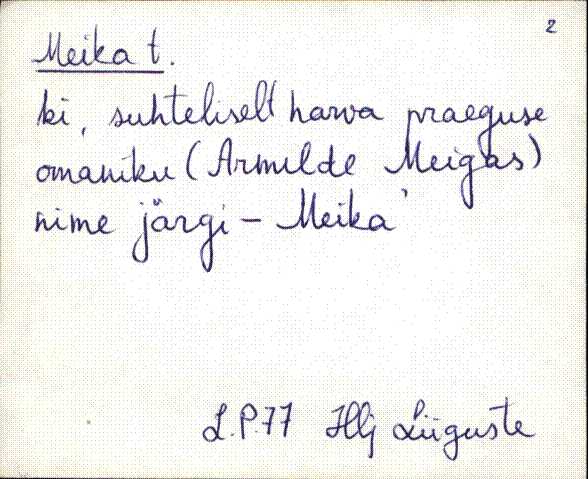 2
Meika t.
ki, suhteliselt harva praeguse
omaniku (Armilde Meigas)
nime järgi – Meika'
L.P.77 Hlj Liiguste